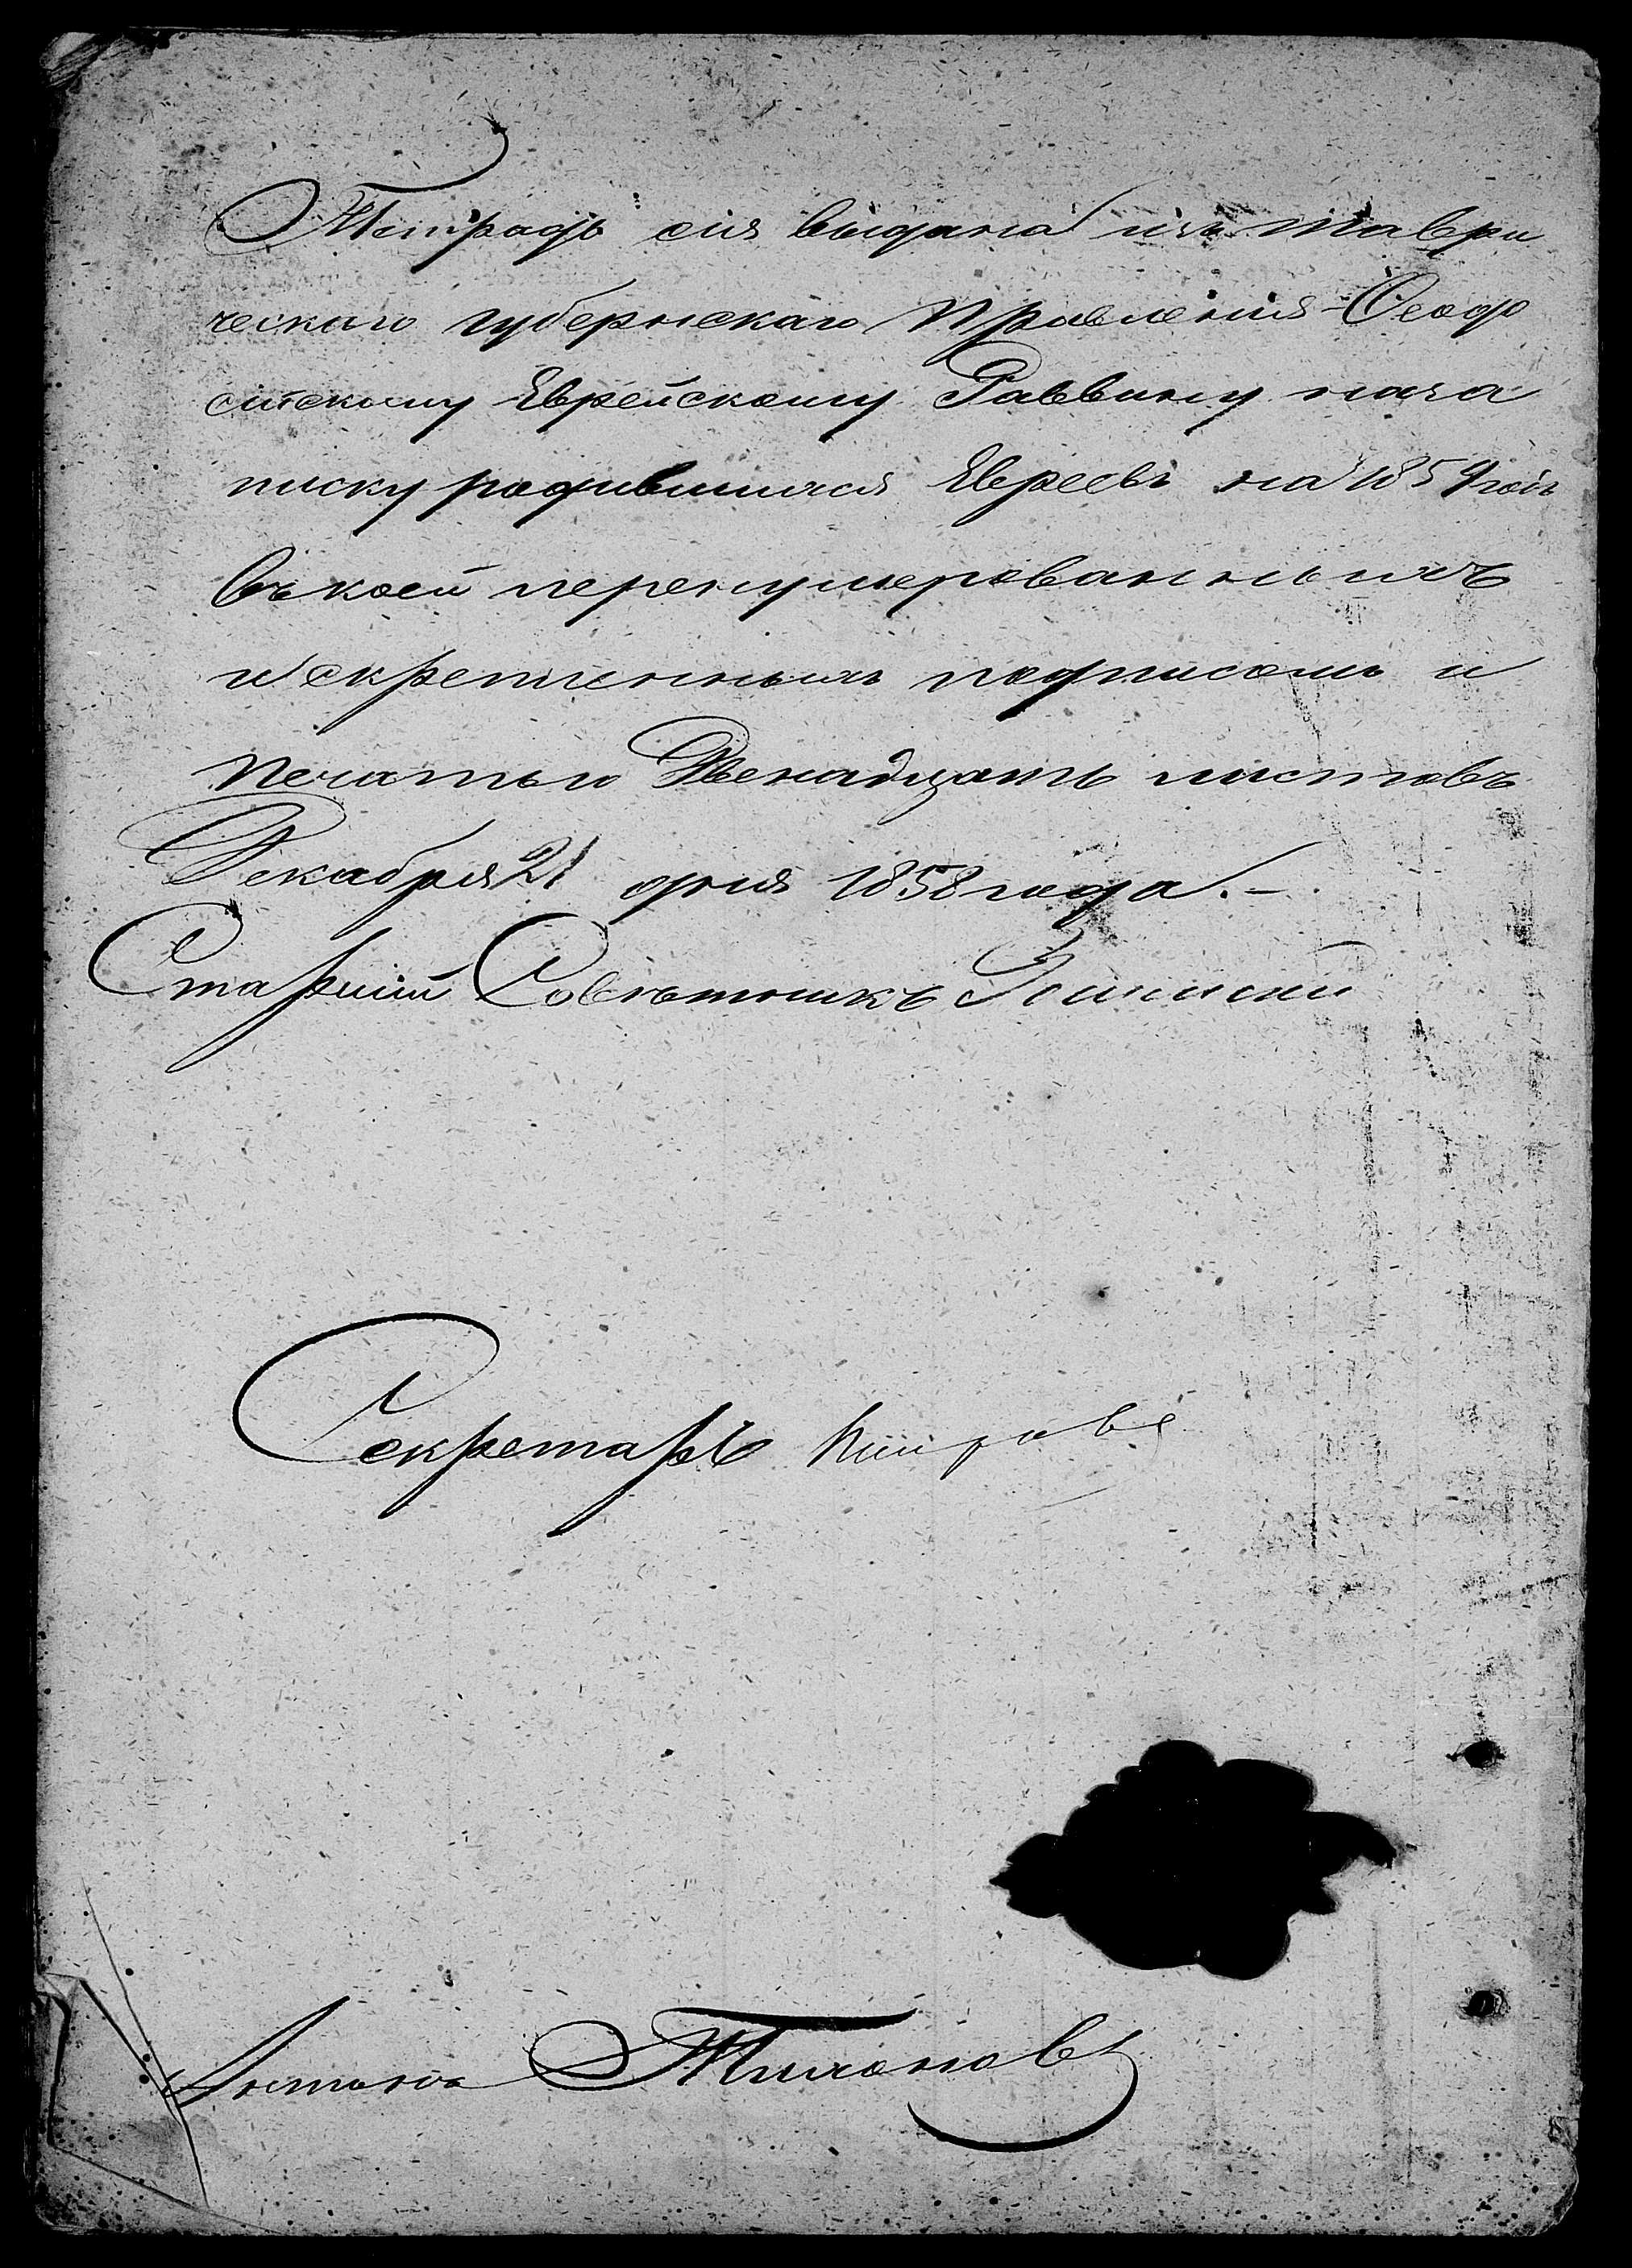 Тетрадь сія выдана изъ Таври
ческаго губернскаго Правленія Ѳеодо
сійскому Еврейскому Раввину на за
писку родившихся Евреевъ на 1859 годъ
въ коей перенумерованныхъ
и скрепленныхъ подписомъ и
печатью Двенадцать листовъ
Декабря 21 дня 1858 года. –
Старшій Совѣтникъ
Секретарь
Тихоновъ